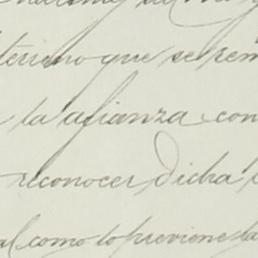 terreno que se rem
la afianza con
reconocer dicha
al como lo previene la